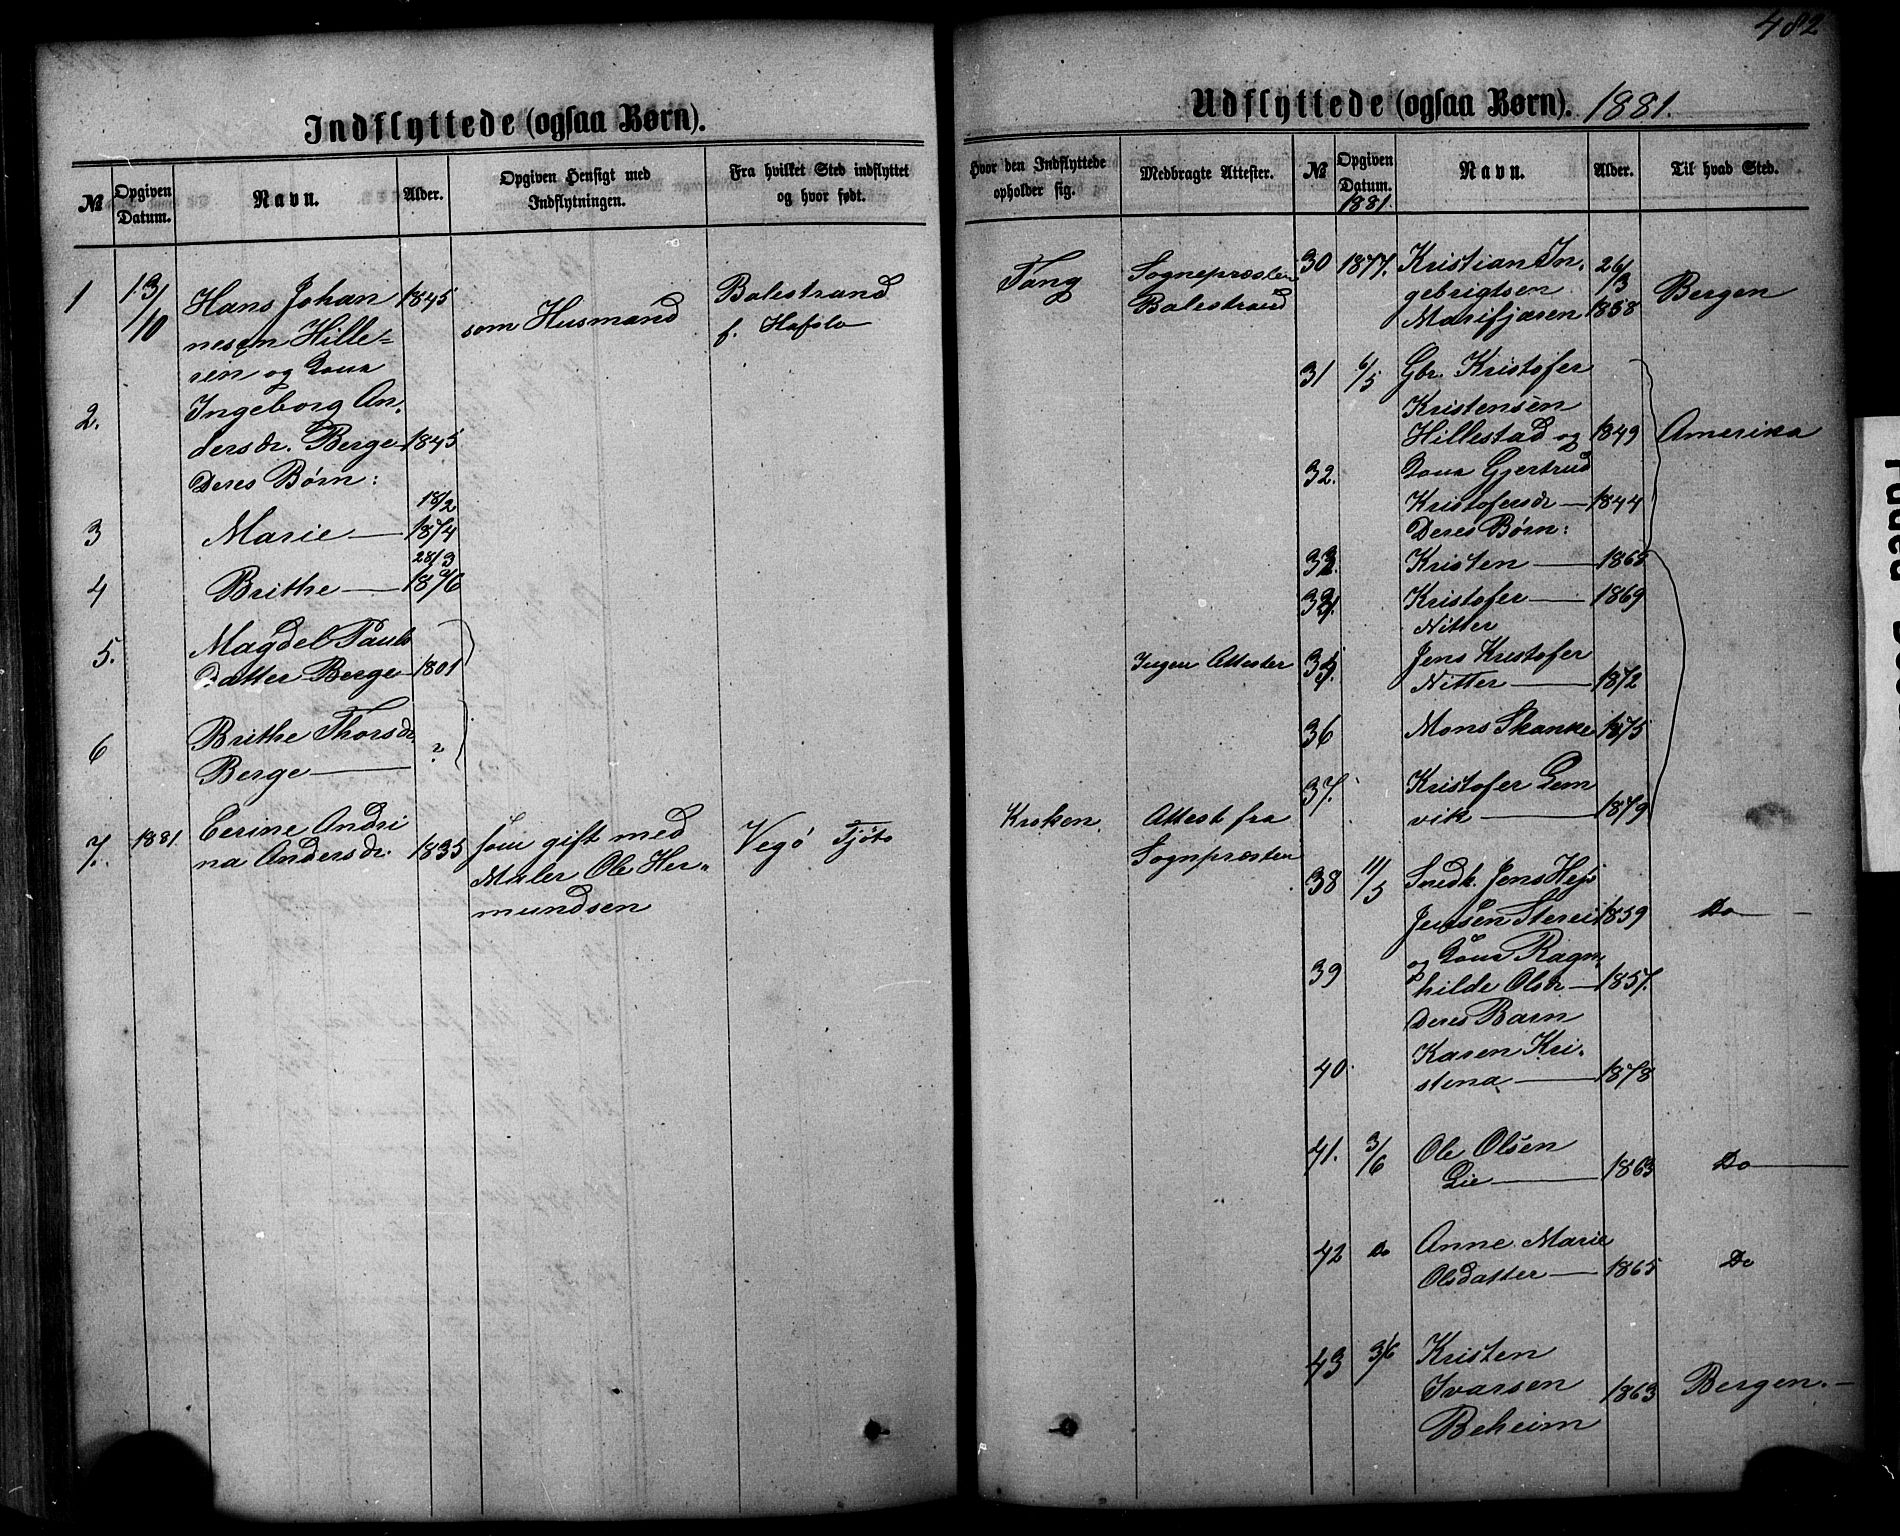 482
Indflyttede (ogsaa Børn).
№
Opgiven Datum.
Navn.
Alder.
Opgiven Hensigt med Indflytningen.
Fra hvilket Sted indflyttet og hvor født.
1 13/10 Hans Johan 1845 som Husmand Balestrand
nesen Hille= f. Hafslo
sien og Kona
2. Ingeborg An.
dersdr. Berge 1845
Deres Børn:
3 Marie — 18/2 1874
4 Brithe — 28/3 1876
5. Magdel Pauls
datter Berge 1801
6 Brithe Thorsdr.
Berge — ?
7. 1881 Andri 1835 som gift med Vegø Tjøto
na Andersdr. Maler Ole Her=
mundsen
Udflyttede (ogsaa Børn). 1881.
Hvor den Indflyttede opholder sig.
Medbragte Attester.
№
Opgiven Datum.
1881.
Navn.
Alder.
Til hvad Sted.
Tang Sognepresten
Balestrand
Ingen Attester
Kroken. Attest fra
Sognpræsten
30 1877. Kristian In. 26/3
gebrigtsen Bergen
Marifjæren 1858
31 6/5 Gbr. Kristofer
Kristensen
Hillestad og 1849 Amerika
32. Kona Gjertrud
Kristofersdr — 1844
Deres Børn:
33. Kristen — 1868
34. Kristofer — 1869
Nitter
35 Jens Kristofer
Nitter — 1872
36 Mons Skanke 1875
37. Kristofer Lem
vik — 1879
38 11/5 Snedk. Jens
Jensen 1859 Do —
39 og Kona Ragn
hilde Olsdr — 1857.
Deres Barn
40. Karen Kri.
stina — 1878
41. 3/6 Ole Olsen
Lie — 1863 Do —
42 Do Anne Marie
Olsdatter — 1865 Do
43 3/6 Kristen
Ivarsen 1863 Bergen. —
Beheim